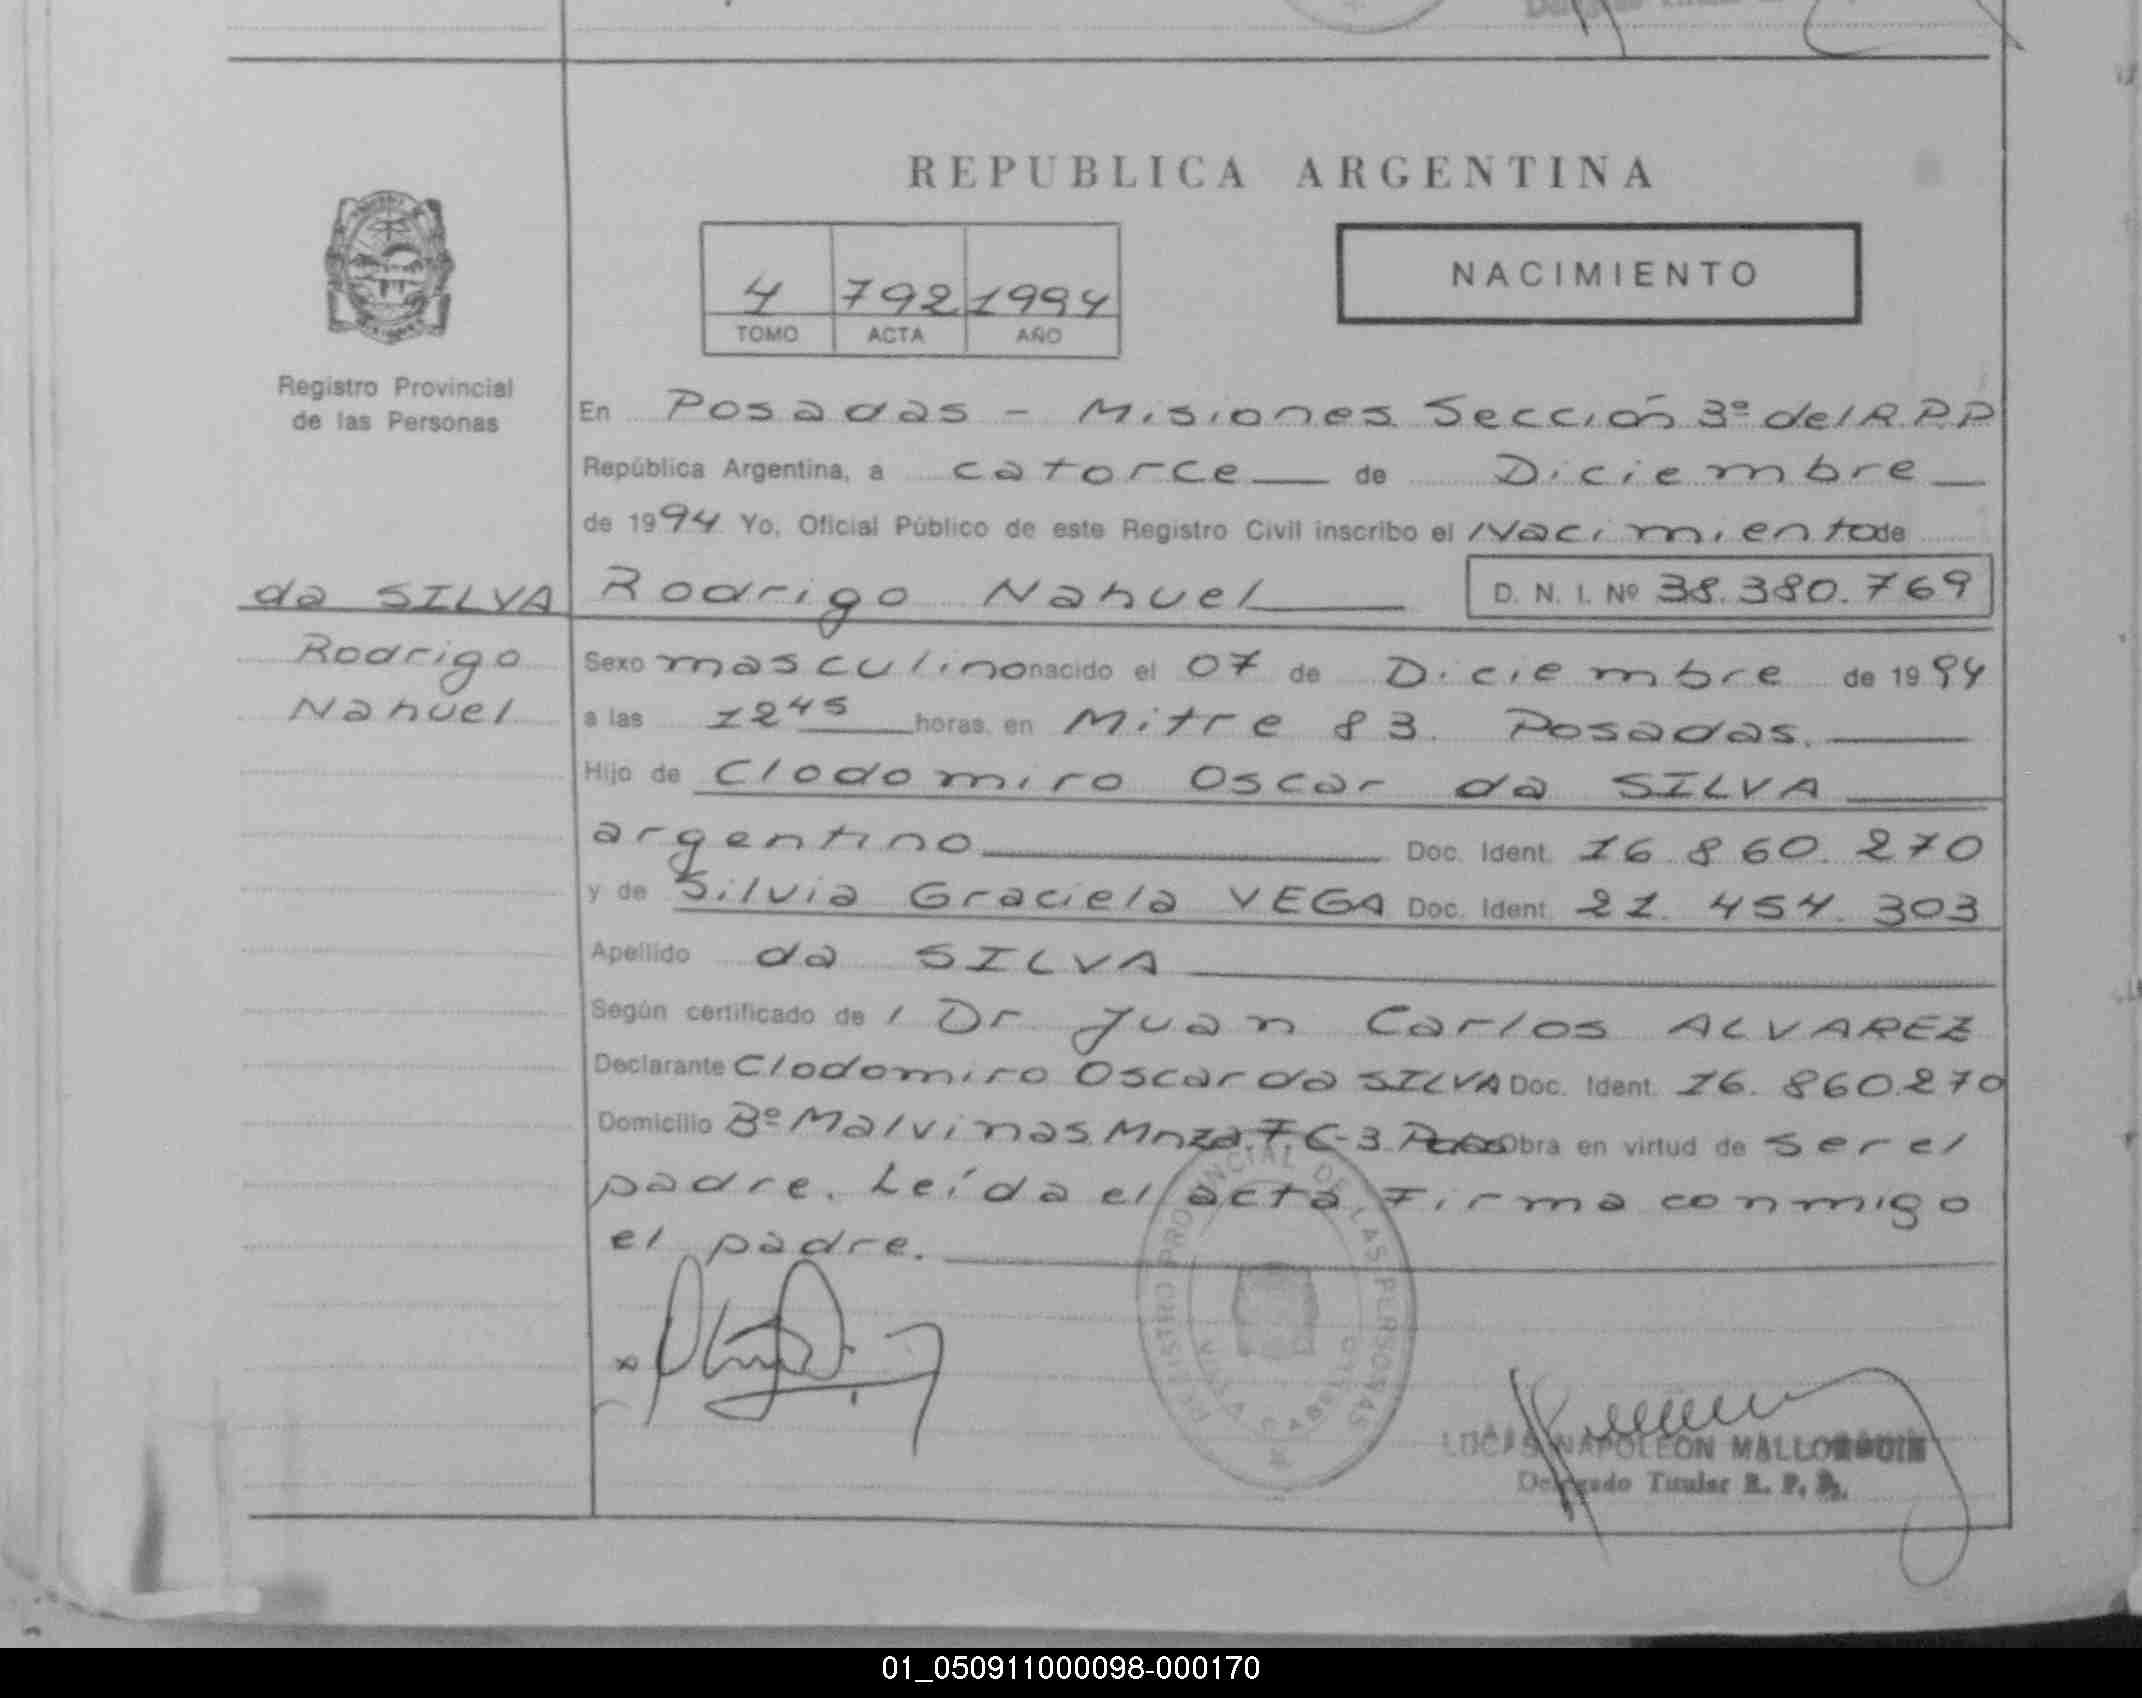 REPUBLICA ARGENTINA
4 792 1994
TOMO ACTA AÑO
NACIMIENTO
Registro Provincial
de las Personas
En Posadas - Misiones Sección 3º del R.P.P
República Argentina, a catorce de Diciembre
de 1994 Yo, Oficial Público de este Registro Civil inscribo el Nacimiento de
da SILVA Rodrigo Nahuel D. N. I. Nº 38.380.769
Rodrigo
Nahuel
Sexo masculino nacido el 07 de Diciembre de 1994
a las 12 45 horas, en Mitre 83. Posadas.
Hijo de Clodomiro Oscar da SILVA
argentino Doc. Ident. 16.860.270
y de Silvia Graciela VEGA Doc. Ident. 21.454.303
Apellido da SILVA
Según certificado de / Dr Juan Carlos ALVAREZ
Declarante Clodomiro Oscar da SILVA Doc. Ident. 16.860.270
Domicilio Bº Malvinas Mnza. 7. C-3 Obra en virtud de ser el
padre. Leída el acta Firma conmigo
el padre.
REGISTRO PROVINCIAL DE LAS PERSONAS
LUCAS NAPOLEON MALLORQUIN
Delegado Titular R. P. P.
01_050911000098-000170